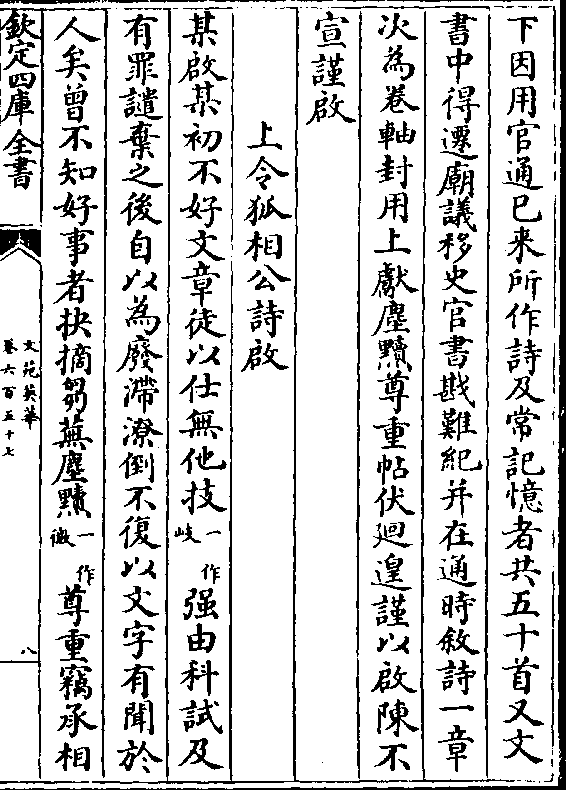 下因用官通已来所作詩及常記憶者共五十首又文
書中得遷廟議移史官書戡難紀并在通時敘詩一章
次為卷軸封用上獻塵黷尊重帖伏廻遑謹以啟陳不
宣謹啟
上令狐相公詩啟
某啟某初不好文章徒以仕無他技一作岐强由科試及
有罪譴棄之後自以為廢滯潦倒不復以文字有聞於
人矣曾不知好事者抉摘芻蕪塵黷一作黴尊重竊承相
欽定四庫全書
文苑英華
卷六百五十七
八